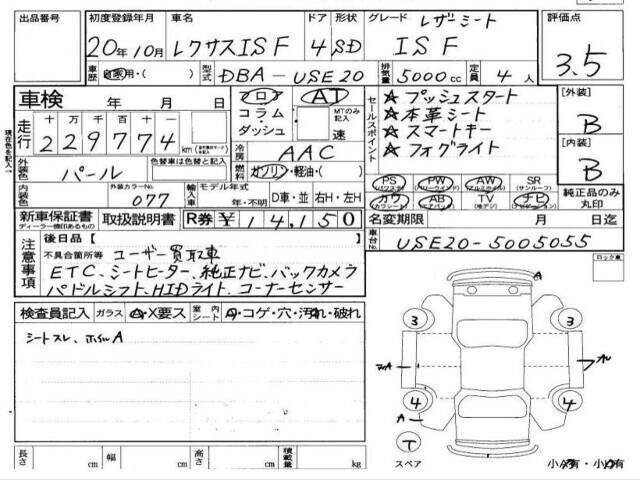 出品番号 初度登録年月 車名 ドア 形状 グレード レザーシート 評価点
20年10月 レクサスISF 4 SD ISF 3.5
車歴 自家用・( ) 型式 DBA-USE20 排気量 5000cc 定員 4人
車検 年 月 日 フロア AT
コラム MTのみ記入
ダッシュ 速
走行 十 万 千 百 十 一
229774 km
冷房 AAC
外装色 パール 色替車は色替と記入 燃料 ガソリン・軽油・( )
内装色 外装カラーNo. 077 輸入車 モデル年式 年・不明 D車・並 右H・左H
セールスポイント ☆プッシュスタート
☆本革シート
☆スマートキー
☆フォグライト
[外装] B
[内装] B
PS (パワステ) PW (パワーウインド) AW (アルミホイル) SR (サンルーフ)
カワ (カワシート) AB (エアバッグ) TV (地デジ) ナビ (ナビゲーション)
純正品のみ丸印
新車保証書 ディーラー捺印あるもの 取扱説明書 R券 ¥14,150 名変期限 月 日迄
車台No. USE20-5005055
現在色を記入
注意事項 後日品【
不具合箇所等 ユーザー買取車
ETC、シートヒーター、純正ナビ、バックカメラ
パドルシフト、HIDライト、コーナーセンサー
ロック車
検査員記入 ガラス A・X要ス 室内シート A・コゲ・穴・汚れ・破れ
シートスレ、ホイルA
A
3 3
4 4
A
T
スペア
長さ cm 幅 cm 高さ cm 積載量 kg
小A有・小U有